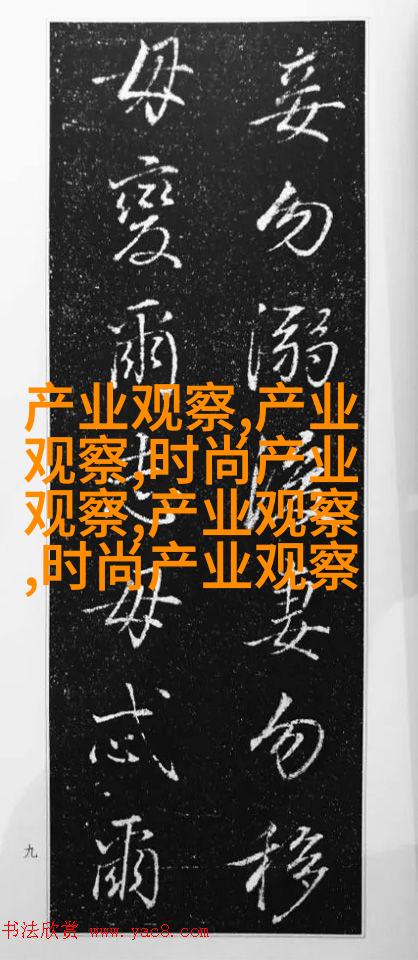 妾勿溺妻勿移
毋變爾毋忒爾
产业观察,产业
观察,时尚产业
观察,产业观察
,时尚产业观察
九
书法欣赏 www.yac8.com